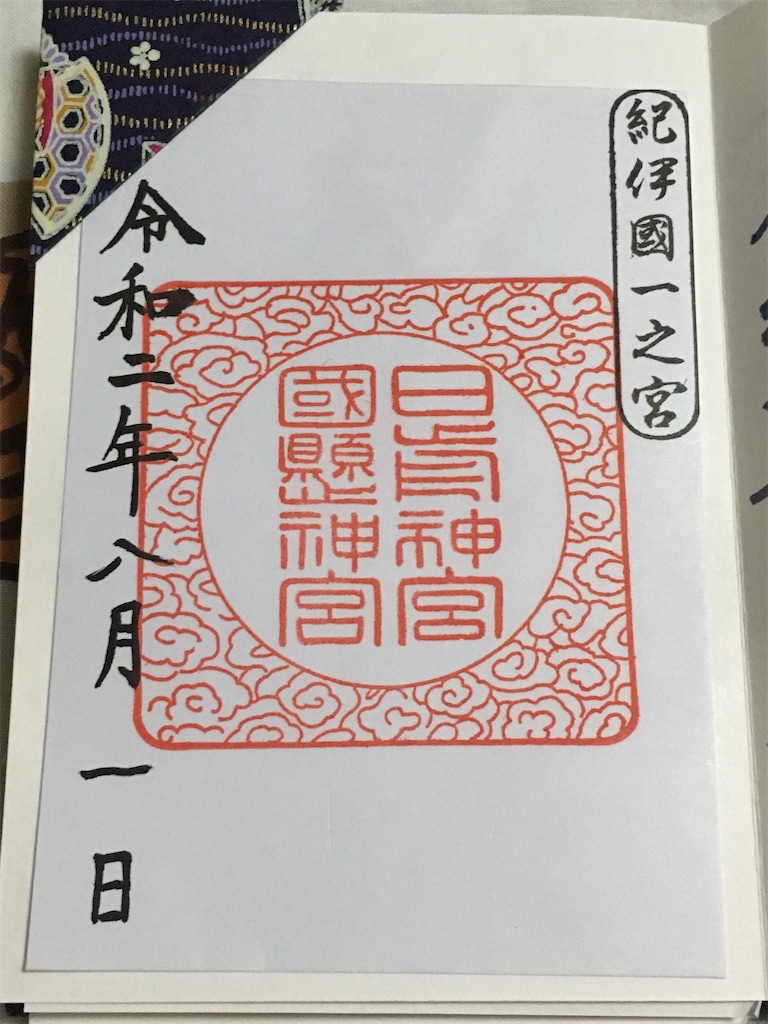 紀伊國一之宮
日前神宮
國懸神宮
令和二年八月一日